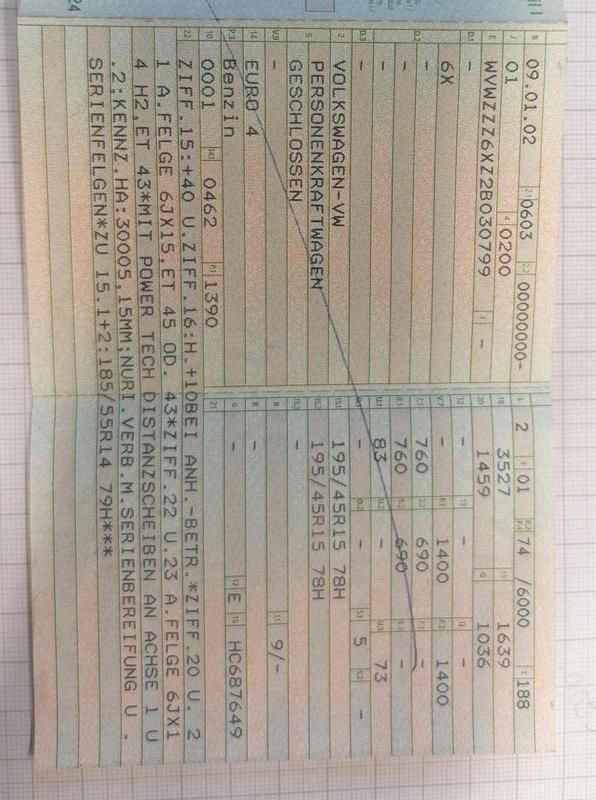 B 09.01.02 2.1 0603 2.2 00000000- L 2 9 01 P.2 P.4 74 /6000 T 188
J 01 4 0200 18 3527 19 1639
E WVWZZZ6XZ2B030799 3 - 20 1459 G 1036
D.1 - 12 - 13 - Q -
6X V.7 - F.1 1400 F.2 1400
D.2 - 7.1 760 7.2 690 7.3 -
- 8.1 760 8.2 690 8.3 -
- U.1 83 U.2 - U.3 73
D.3 - O.1 - O.2 - S.1 5 S.2 -
2 VOLKSWAGEN-VW 15.1 195/45R15 78H
PERSONENKRAFTWAGEN 15.2 195/45R15 78H
5 GESCHLOSSEN 15.3 -
V.9 - R - 11 9/-
14 EURO 4 K -
P.3 Benzin 6 - 17 E 16 HC687649
10 0001 14.1 0462 P.1 1390 21
22 ZIFF.15:+40 U.ZIFF.16:H.+10BEI ANH.-BETR.*ZIFF.20 U. 2
1 A.FELGE 6JX15,ET 45 OD. 43*ZIFF.22 U.23 A.FELGE 6JX1
4 H2,ET 43*MIT POWER TECH DISTANZSCHEIBEN AN ACHSE 1 U
.2:KENNZ.HA:30005,15MM;NURI.VERB.M.SERIENBEREIFUNG U .
SERIENFELGEN*ZU 15.1+2:185/55R14 79H***